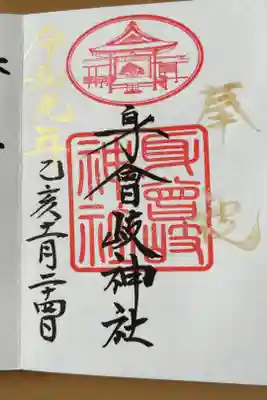 奉拝
身曾岐神社
身曾岐
神社
令和元年
己亥十一月二十四日